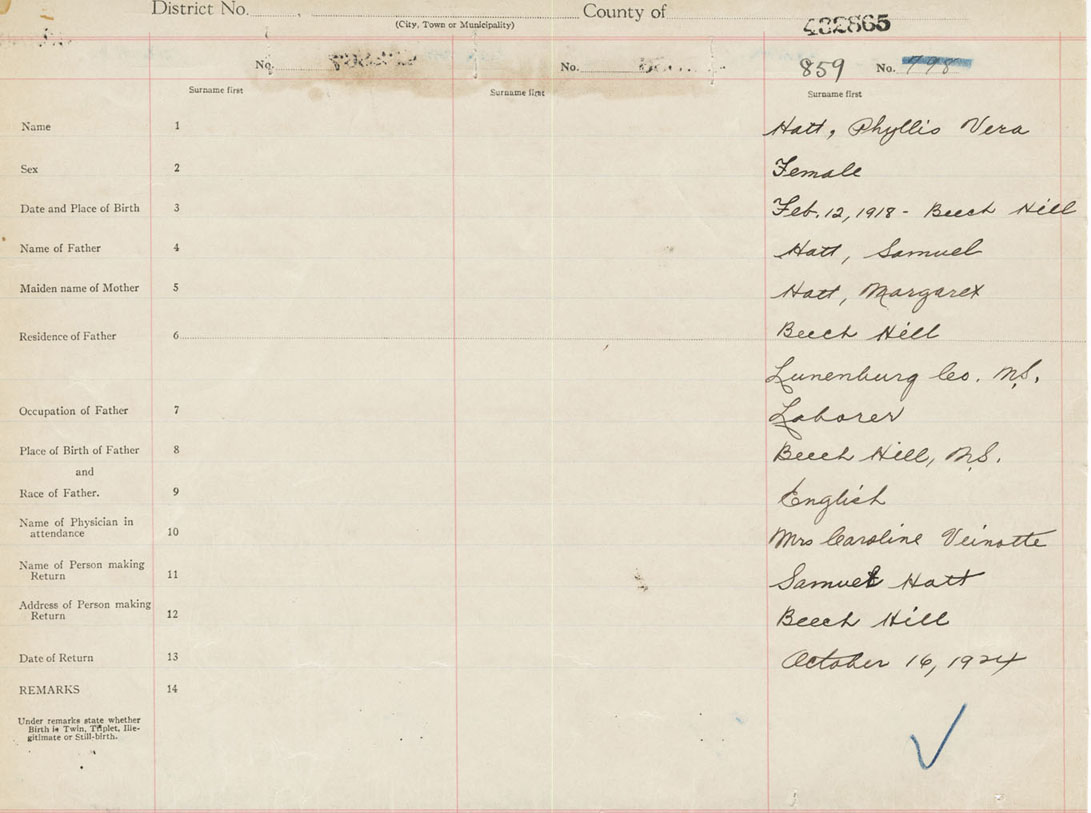 District No. County of
(City, Town or Municipality)
432865
No. No. 859 No. 798
Surname first Surname first Surname first
Name 1 Hatt, Phyllis Vera
Sex 2 Female
Date and Place of Birth 3 Feb. 12, 1918 - Beech Hill
Name of Father 4 Hatt, Samuel
Maiden name of Mother 5 Hatt, Margaret
Residence of Father 6 Beech Hill
Lunenburg Co. N.S.
Occupation of Father 7 Laborer
Place of Birth of Father 8 Beech Hill, N.S.
and
Race of Father. 9 English
Name of Physician in
attendance 10 Mrs Caroline Veinotte
Name of Person making
Return 11 Samuel Hatt
Address of Person making
Return 12 Beech Hill
Date of Return 13 October 16, 1924
REMARKS 14
Under remarks state whether
Birth is Twin, Triplet, Ille-
gitimate or Still-birth.